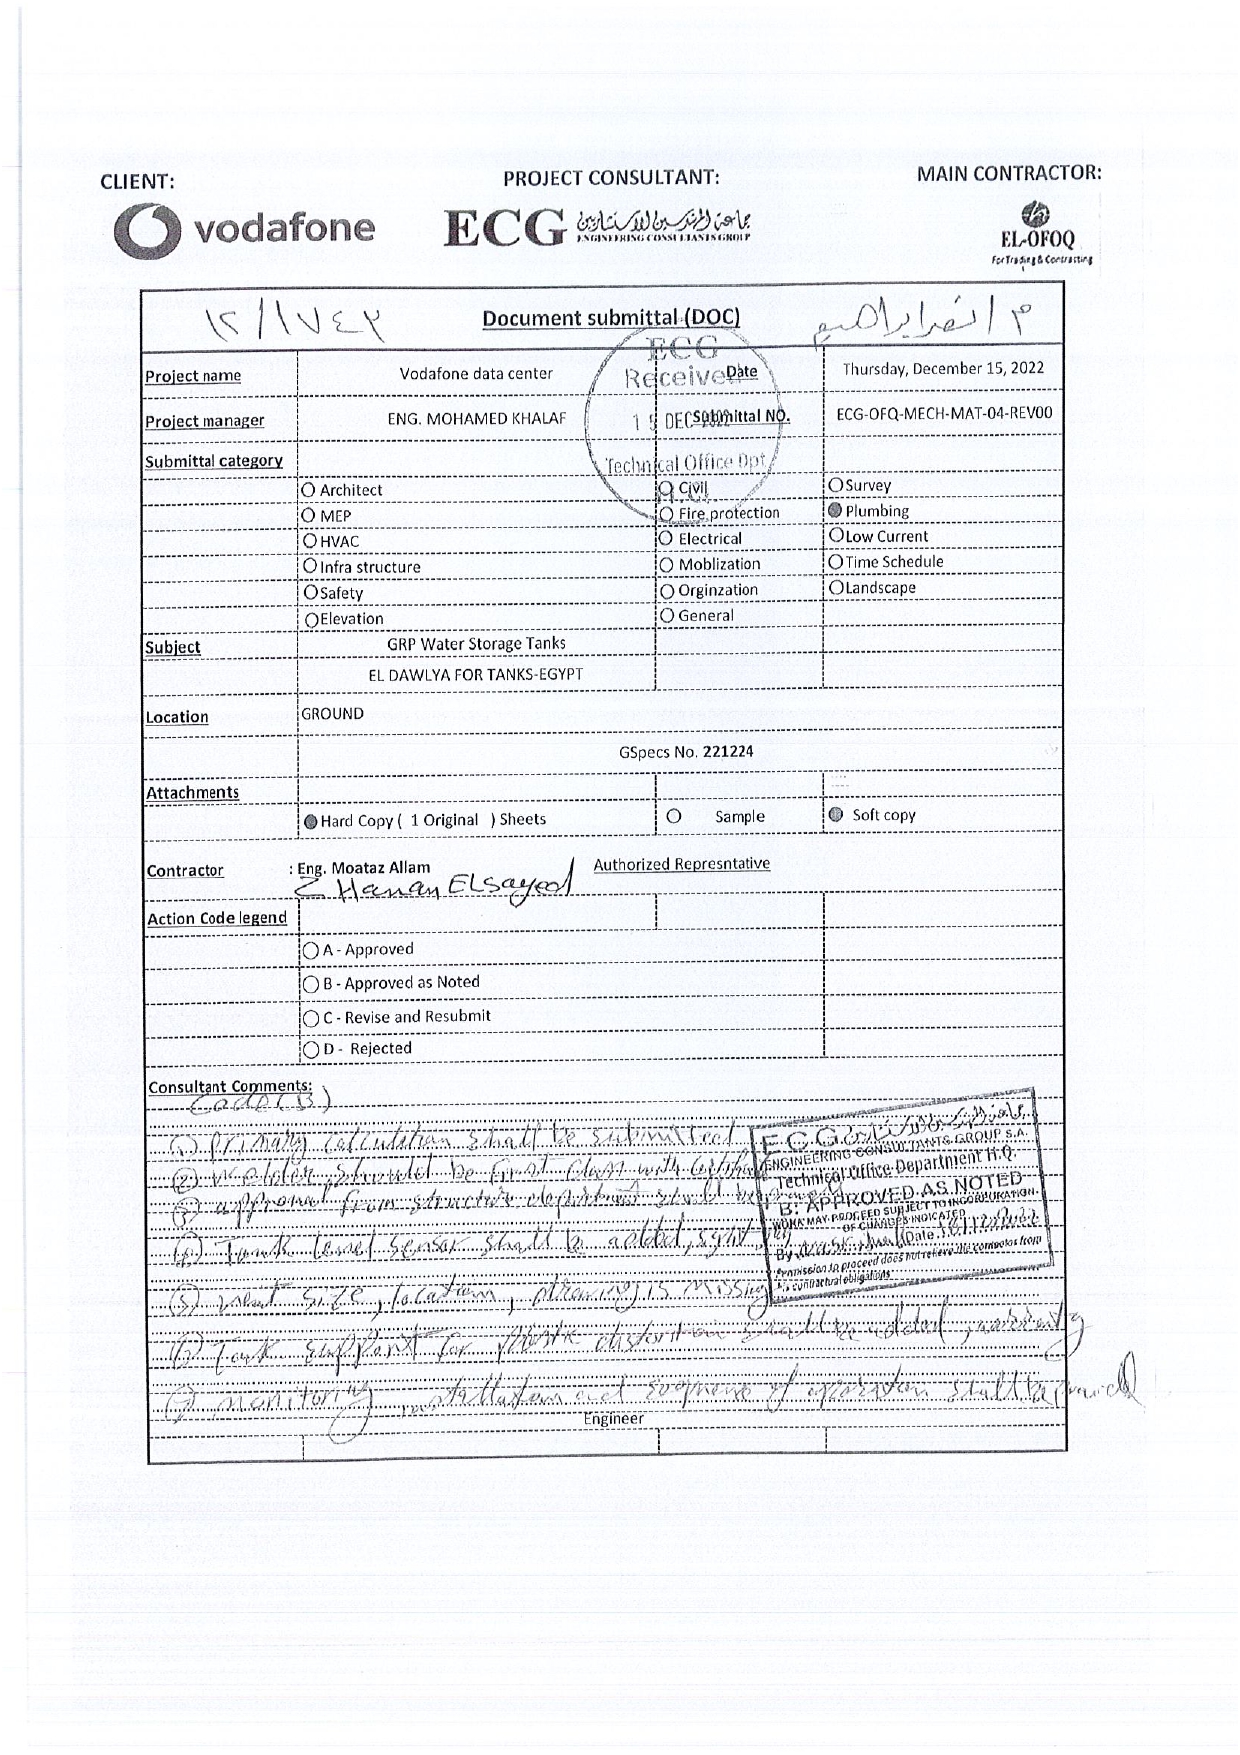 CLIENT:
PROJECT CONSULTANT:
MAIN CONTRACTOR:
vodafone
ECG
ENGINEERING CONSULTANTS GROUP
EL-OFOQ
For Trading & Contracting
١٢/١٧٤٢
Document submittal (DOC)
Project name
Vodafone data center
Date
Thursday, December 15, 2022
Project manager
ENG. MOHAMED KHALAF
Submittal NO.
ECG-OFQ-MECH-MAT-04-REV00
ECG
Received
DEC
Technical Office Dpt
Submittal category
Architect
Civil
Survey
MEP
Fire protection
Plumbing
HVAC
Electrical
Low Current
Infra structure
Moblization
Time Schedule
Safety
Orginzation
Landscape
Elevation
General
Subject
GRP Water Storage Tanks
EL DAWLYA FOR TANKS-EGYPT
Location
GROUND
GSpecs No. 221224
Attachments
Hard Copy ( 1 Original ) Sheets
Sample
Soft copy
Contractor
: Eng. Moataz Allam
Authorized Represntative
Hanan ELsayed
Action Code legend
A - Approved
B - Approved as Noted
C - Revise and Resubmit
D - Rejected
Consultant Comments:
Code (B)
(1) primary calculation shall be submitted
(2) should be first class with
(3) approval from structure department should be
(4) Tank level sensor shall be added,
(5) vent size, location, is missing
(6) Tank support for shall be added,
(7) monitoring installation and of operation shall be
E.C.G
ENGINEERING CONSULTANTS GROUP S.A.
Technical Office Department H.Q.
B: APPROVED AS NOTED
WORK MAY PROCEED SUBJECT TO INCORPORATION
OF CHANGES INDICATED
By Date
Permission to proceed does not relieve the contractor from
his contractual obligations
Engineer